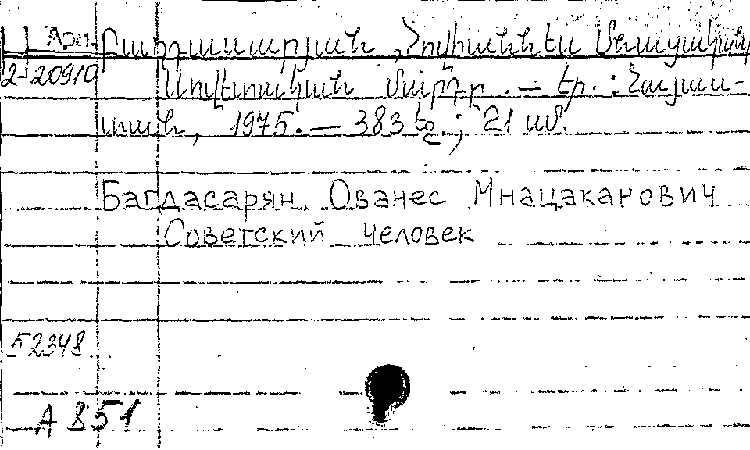 Ц Арм Բաղդասարյան, Հովհաննես Մնացականի
2-20910 Սովետական մարդը. — Եր. : Հայաս-
տան, 1975. — 383 էջ ; 21 սմ.
Багдасарян, Ованес Мнацаканович
Советский человек
52348
А 851